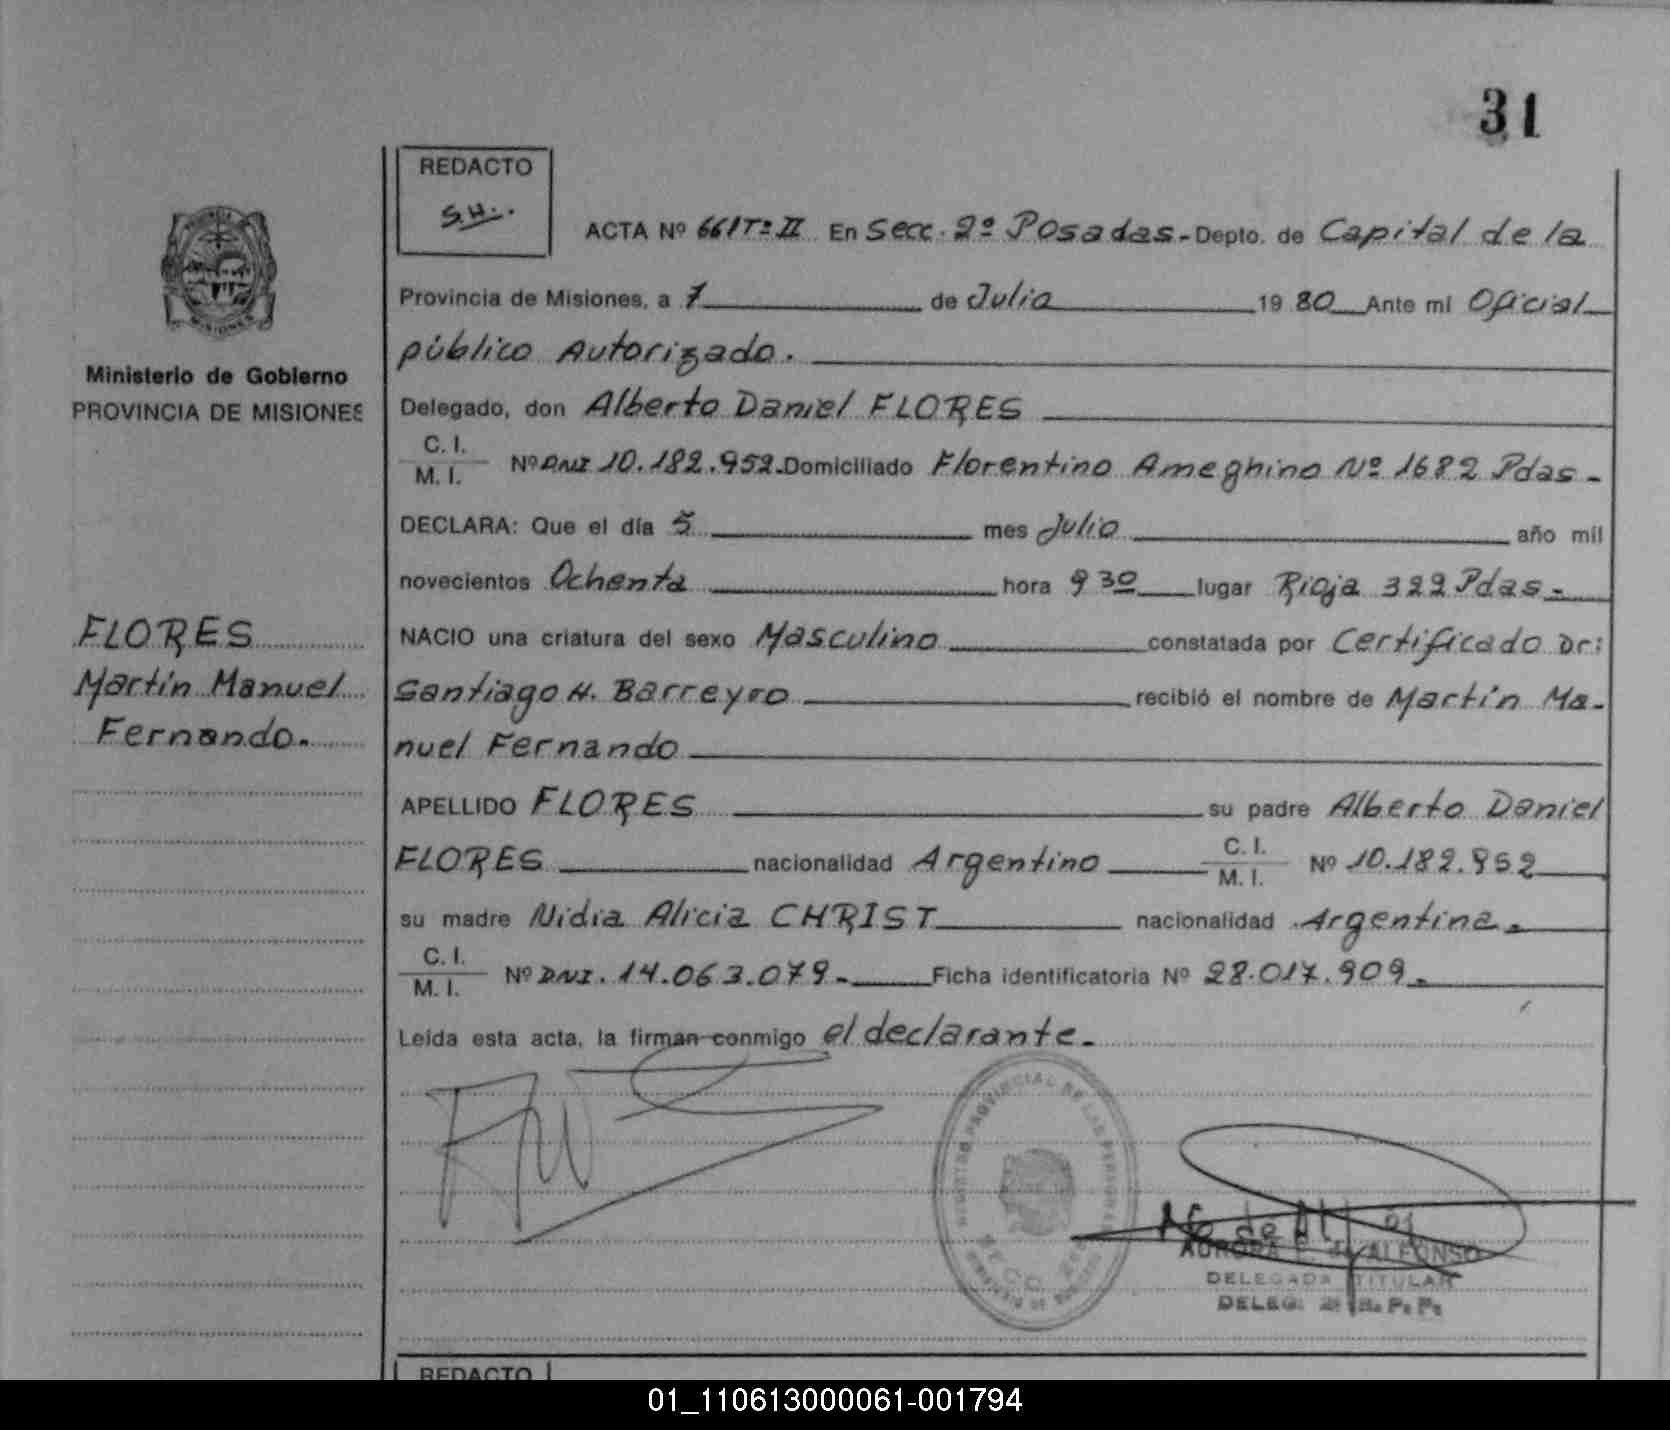 31
REDACTO
S.H.
ACTA Nº 661 Tº II En Secc. 2º Posadas.- Depto. de Capital de la
Provincia de Misiones, a 7 de Julio 19 80 Ante mi Oficial
público Autorizado.
Ministerio de Gobierno
PROVINCIA DE MISIONES
Delegado, don Alberto Daniel FLORES
C. I.
M. I.
Nº DNI 10.182.952.- Domiciliado Florentino Ameghino Nº 1682 Pdas -
DECLARA: Que el día 5 mes Julio año mil
novecientos Ochenta hora 9 30 lugar Rioja 322 Pdas -
FLORES
Martín Manuel
Fernando.
NACIO una criatura del sexo Masculino constatada por Certificado Dr:
Santiago H. Barreyro recibió el nombre de Martín Ma-
nuel Fernando
APELLIDO FLORES su padre Alberto Daniel
FLORES nacionalidad Argentino C. I. M. I. Nº 10.182.952
su madre Nidia Alicia CHRIST nacionalidad Argentina.
C. I.
M. I.
Nº DNI. 14.063.079.- Ficha identificatoria Nº 28.017.909.
Leída esta acta, la firman conmigo el declarante.-
REGISTRO PROVINCIAL DE LAS PERSONAS
AURORA E. de ALFONSO
DELEGADA TITULAR
DELEG. 2ª R. P. P.
REDACTO
01_110613000061-001794